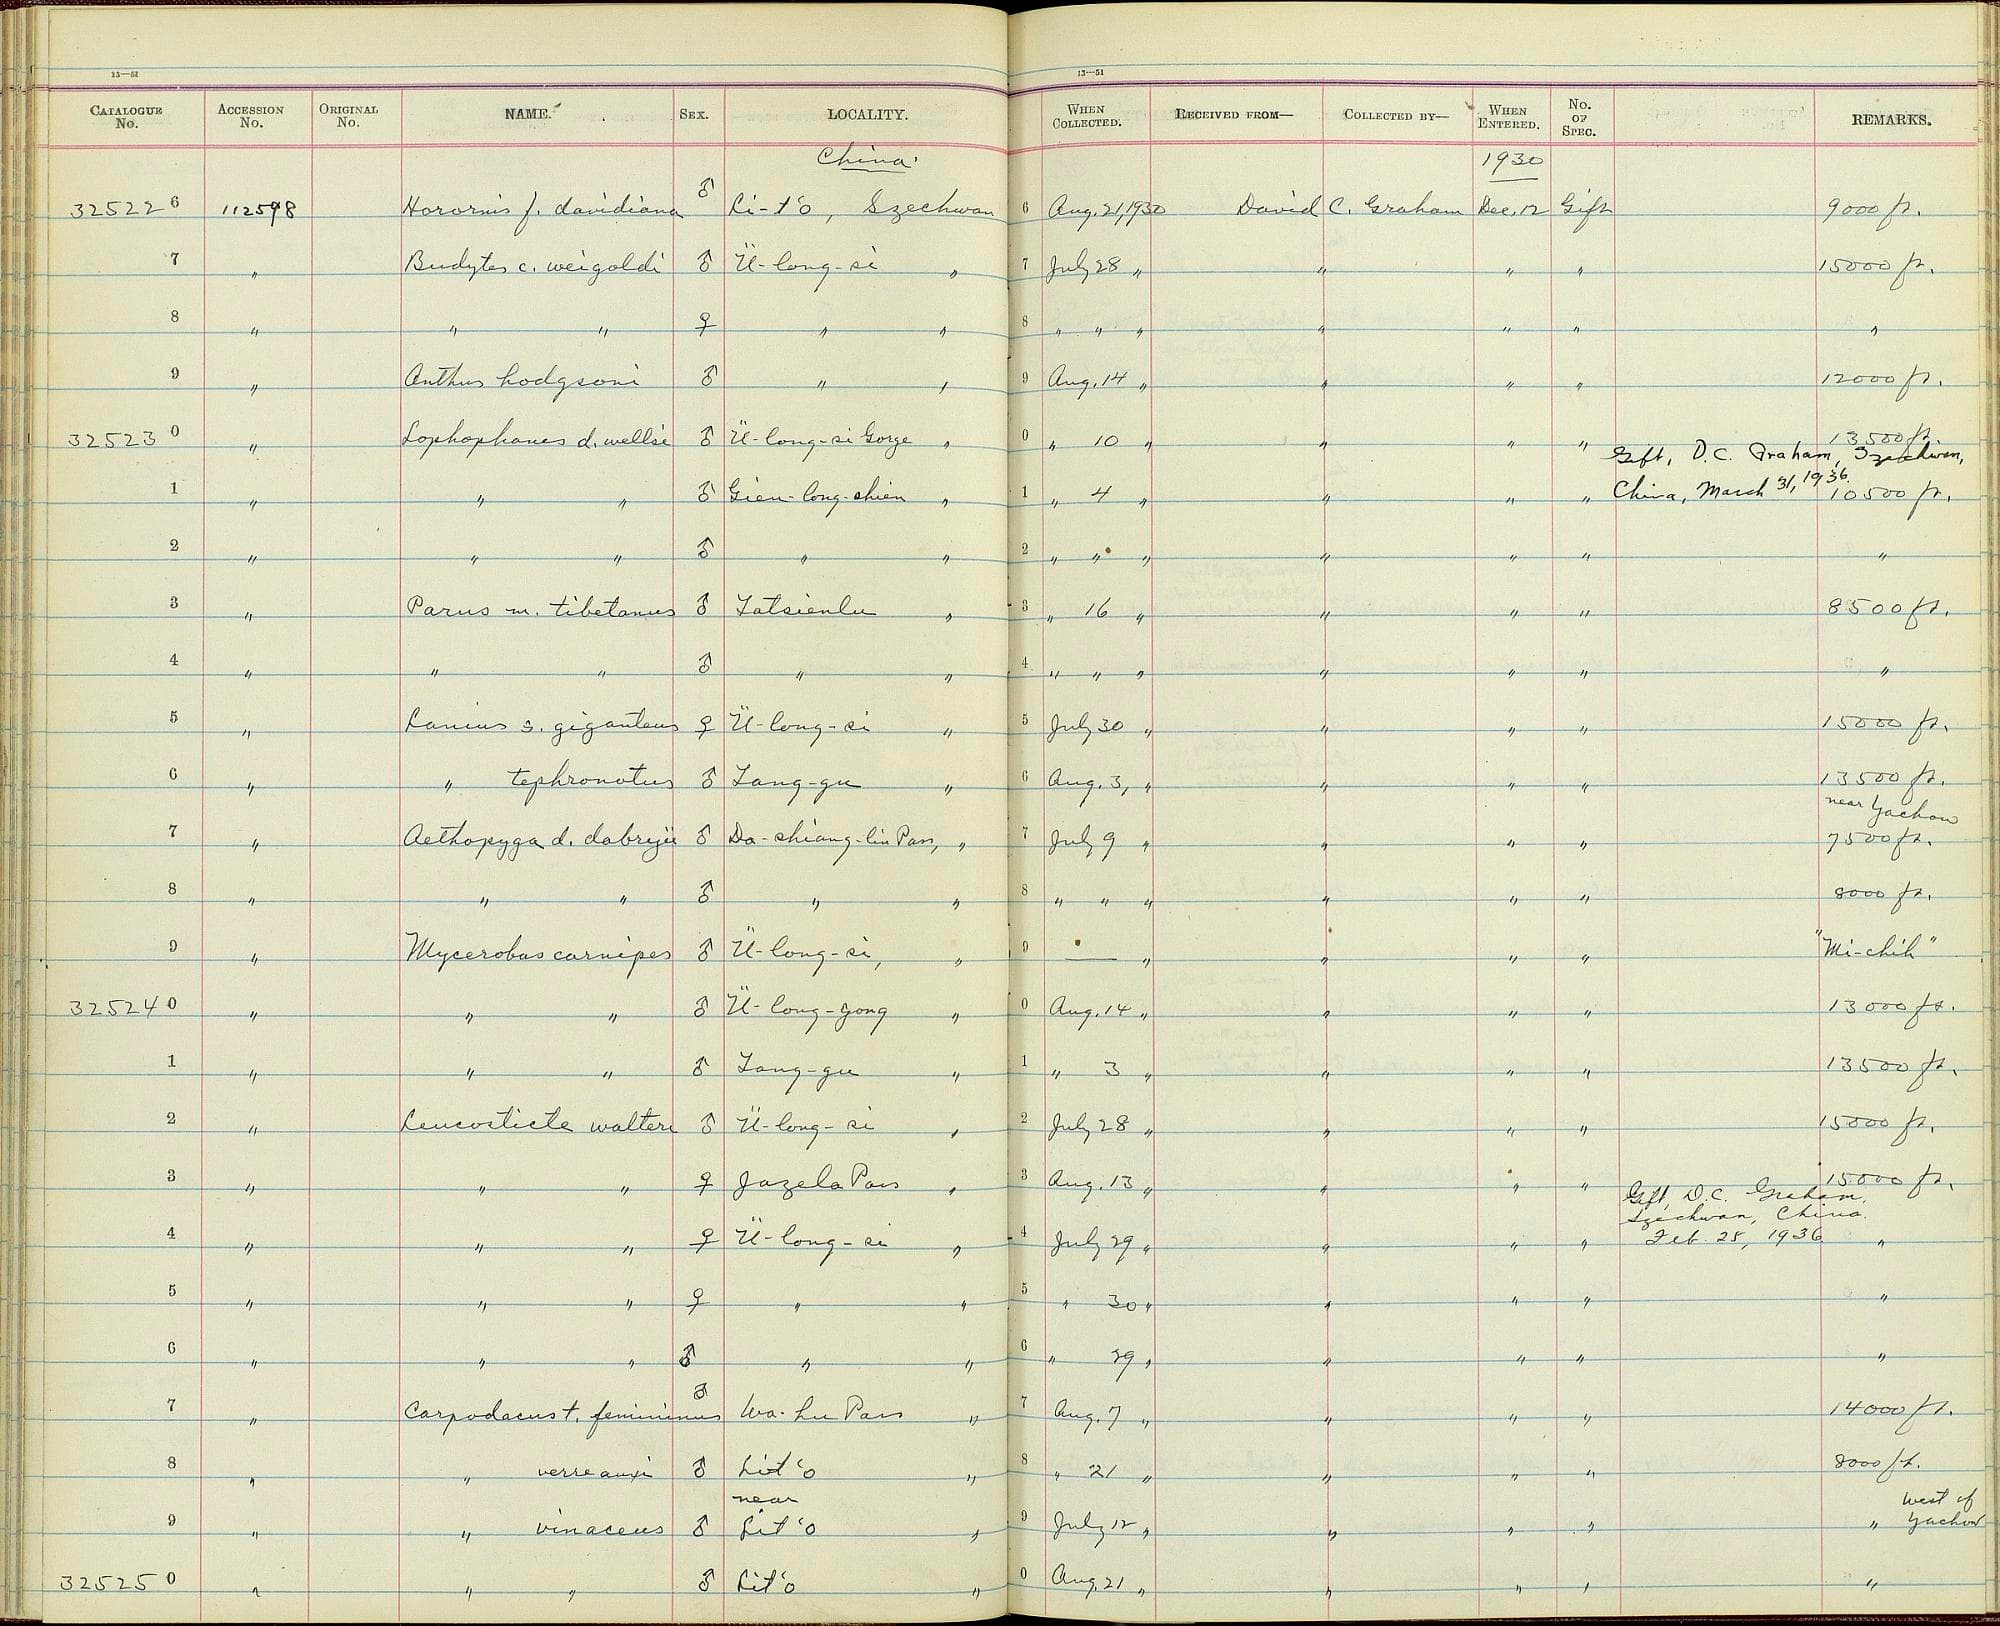 13—51 13—51
CATALOGUE No. ACCESSION No. ORIGINAL No. NAME. SEX. LOCALITY. WHEN COLLECTED. RECEIVED FROM— COLLECTED BY— WHEN ENTERED. No. OF SPEC. REMARKS.
China 1930
325226 112598 Horornis f. davidiana ♂ Li-t'o, Szechwan 6 Aug. 21, 1930 David C. Graham Dec. 12 Gift 9000 ft.
7 " Budytes c. weigoldi ♂ Ü-long-si " 7 July 28 " " " " 15000 ft.
8 " " " ♀ " " 8 " " " " " " "
9 " Anthus hodgsoni ♂ " " 9 Aug. 14 " " " " 12000 ft.
325230 " Lophophanes d. wellsi ♂ Ü-long-si Gorge " 0 " 10 " " " " 13500 ft.
Gift, D.C. Graham, Szechwan,
China, March 31, 1936.
1 " " " ♂ Gien-long-shien " 1 " 4 " " " " 10500 ft.
2 " " " ♂ " " 2 " " " " " " "
3 " Parus m. tibetanus ♂ Tatsienlu " 3 " 16 " " " " 8500 ft.
4 " " " ♂ " " 4 " " " " " " "
5 " Lanius s. giganteus ♀ Ü-long-si " 5 July 30 " " " " 15000 ft.
6 " " tephronotus ♂ Tang-gu " 6 Aug. 3, " " " " 13500 ft.
near Yachow
7 " Aethopyga d. dabryii ♂ Da-shiang-lin Pass, " 7 July 9 " " " " 7500 ft.
8 " " " ♂ " " 8 " " " " " " 8000 ft.
9 " Mycerobas carnipes ♂ Ü-long-si, " 9 — " " " " "Mi-chih"
325240 " " " ♂ Ü-long-gong " 0 Aug. 14 " " " " 13000 ft.
1 " " " ♂ Tang-gu " 1 " 3 " " " " 13500 ft.
2 " Leucosticte walteri ♂ Ü-long-si " 2 July 28 " " " " 15000 ft.
3 " " " ♀ Jazela Pass " 3 Aug. 13 " " " " 15000 ft.
Gift, D.C. Graham,
Szechwan, China.
Feb. 28, 1936
4 " " " ♀ Ü-long-si " 4 July 29 " " " " "
5 " " " ♀ " " 5 " 30 " " " " "
6 " " " ♂ " " 6 " 29 " " " " "
7 " Carpodacus t. femininus ♂ Wa-hu Pass " 7 Aug. 7 " " " " 14000 ft.
8 " " verreauxi ♂ Lit'o " 8 " 21 " " " " 8000 ft.
near west of
9 " " vinaceus ♂ Lit'o " 9 July 12 " " " " " Yachow
325250 " " " ♂ Lit'o " 0 Aug. 21 " " " " "